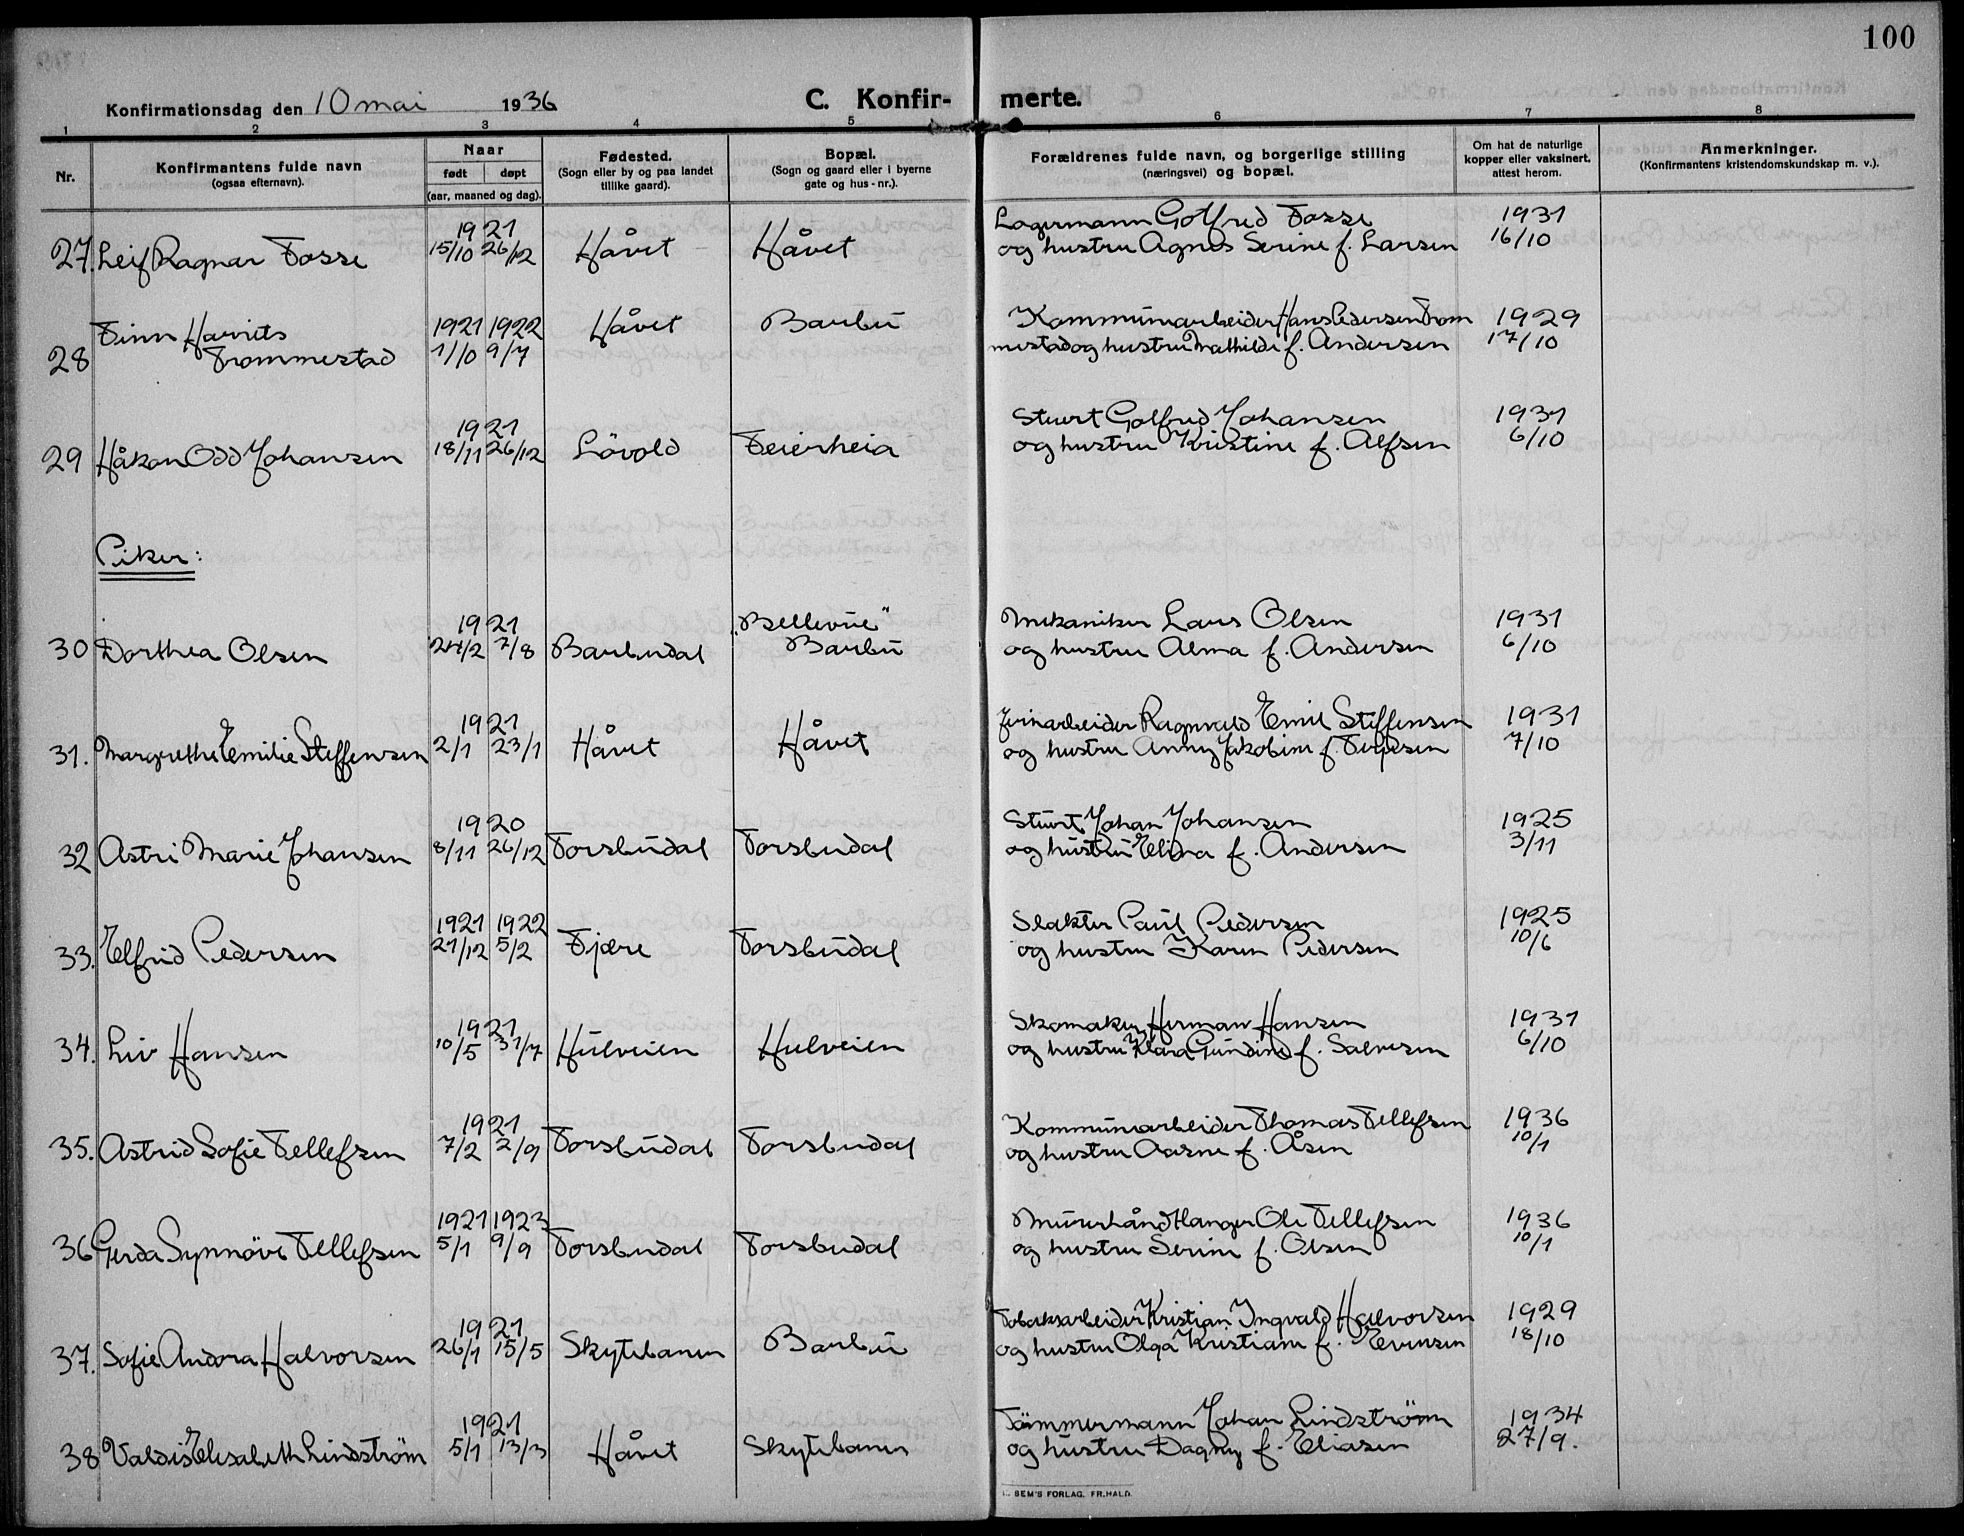 100
Konfirmationsdag den 10 mai 1936 C. Konfir- merte.
1 2 3 4 5 6 7 8
Nr. Konfirmantens fulde navn (ogsaa efternavn). Naar født døpt (aar, maaned og dag). Fødested. (Sogn eller by og paa landet tillike gaard). Bopæl. (Sogn og gaard eller i byerne gate og hus-nr.). Forældrenes fulde navn, og borgerlige stilling (næringsvei) og bopæl. Om hat de naturlige kopper eller vaksinert. attest herom. Anmerkninger. (Konfirmantens kristendomskundskap m. v.).
1921 Lagermann Golfred Fosse 1931
27. Leif Ragnar Fosse 15/10 26/12 Håvet Håvet og hustru Agnes Serine f. Larsen 16/10
Finn Harvits 1921 1922 Håvet Barbu Kommunarbeider Hans Pedersen From 1929
28 Frommestad 1/10 9/7 mestad og hustru Mathilde f. Andersen 17/10
1921 Stuert Golfred Johansen 1931
29 Håkon Odd Johansen 18/11 26/12 Lövold Feierheia og hustru Kristine f. Alfsen 6/10
Piker:
1921 "Bellevue" Mekaniker Lars Olsen 1931
30 Dorthea Olsen 24/2 7/8 Barbudal Barbu og hustru Alma f. Andersen 6/10
1921 Ragnvald Emil Steffensen 1931
31. Margrethe Emilie Steffensen 2/1 23/1 Håvet Håvet og hustru Anny Jakobine f. 7/10
1920 Stuert Johan Johansen 1925
32 Astri Marie Johansen 8/11 26/12 Torsbudal Torsbudal og hustru Elina f. Andersen 3/11
1921 1922 Slakter Paul Pedersen 1925
33. Elfrid Pedersen 21/12 5/2 Fjære Torsbudal og hustru Karen Pedersen 10/6
1921 Skomaker Herman Hansen 1931
34. Liv Hansen 10/5 31/7 Hulveien Hulveien og hustru Klara Gundine f. Salvesen 6/10
1921 Kommunarbeider Thomas Tellefsen 1936
35. Astrid Sofie Tellefsen 7/2 2/9 Torsbudal Torsbudal og hustru Aasne f. Åsen 10/1
1921 1923 Murerhåndtlanger Ole Tellefsen 1936
36 Gerda Synnöve Tellefsen 5/1 9/9 Torsbudal Torsbudal og hustru Serine f. Olsen 10/1
1921 Tobaksarbeider Kristian Ingvald Halvorsen 1929
37. Sofie Andora Halvorsen 26/1 15/5 Skytebanen Barbu og hustru Olga Kristiane f. Evensen 18/10
1921 Tömmermann Johan Lindstrøm 1934
38 Valdis Elisabeth Lindström 5/1 13/3 Håvet Skytebanen og hustru Dagny f. Eliasen 27/9.
SEM'S FORLAG, FR.HALD.